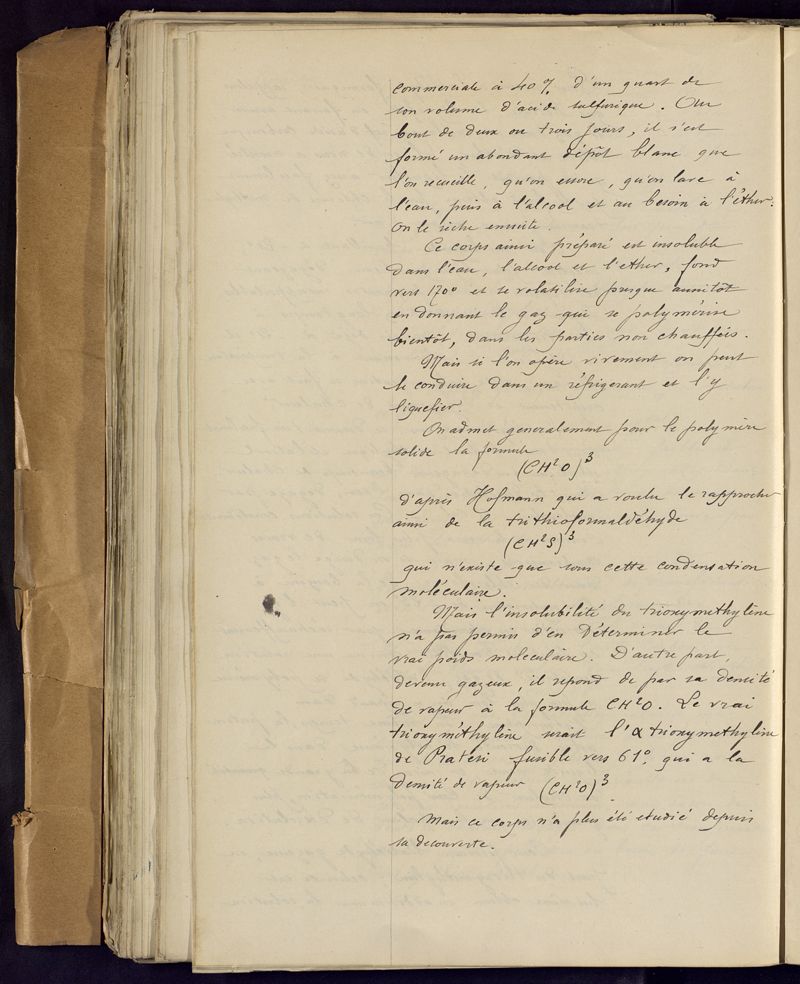 commerciale à 40% d'un quart de
son volume d'acide sulfurique. Au
bout de deux ou trois jours, il s'est
formé un abondant dépôt blanc que
l'on recueille, qu'on essore, qu'on lave à
l'eau, puis à l'alcool et au besoin à l'éther.
On le sèche ensuite.
Ce corps ainsi préparé est insoluble
dans l'eau, l'alcool et l'ether, fond
vers 170° et se volatilise presque aussitôt
en donnant le gaz qui se polymérise
bientôt, dans les parties non chauffées.
Mais si l'on opère vivement on peut
le conduire dans un réfrigerant et l'y
liquefier.
On admet generalement pour le polymère
solide la formule
(CH²O)³
d'après Hofmann qui a voulu le rapprocher
ainsi de la trithioformaldéhyde
(CH²S)³
qui n'existe que sous cette condensation
moléculaire.
Mais l'insolubilité du trioxymethylène
n'a pas permis d'en déterminer le
vrai poids moleculaire. D'autre part,
devenu gazeux, il repond de par sa densité
de vapeur à la formule CH²O. Le vrai
trioxyméthylène serait l'α trioxymethylène
de Pratesi fusible vers 61°, qui a la
densité de vapeur (CH²O)³
Mais ce corps n'a plus été etudié depuis
sa decouverte.